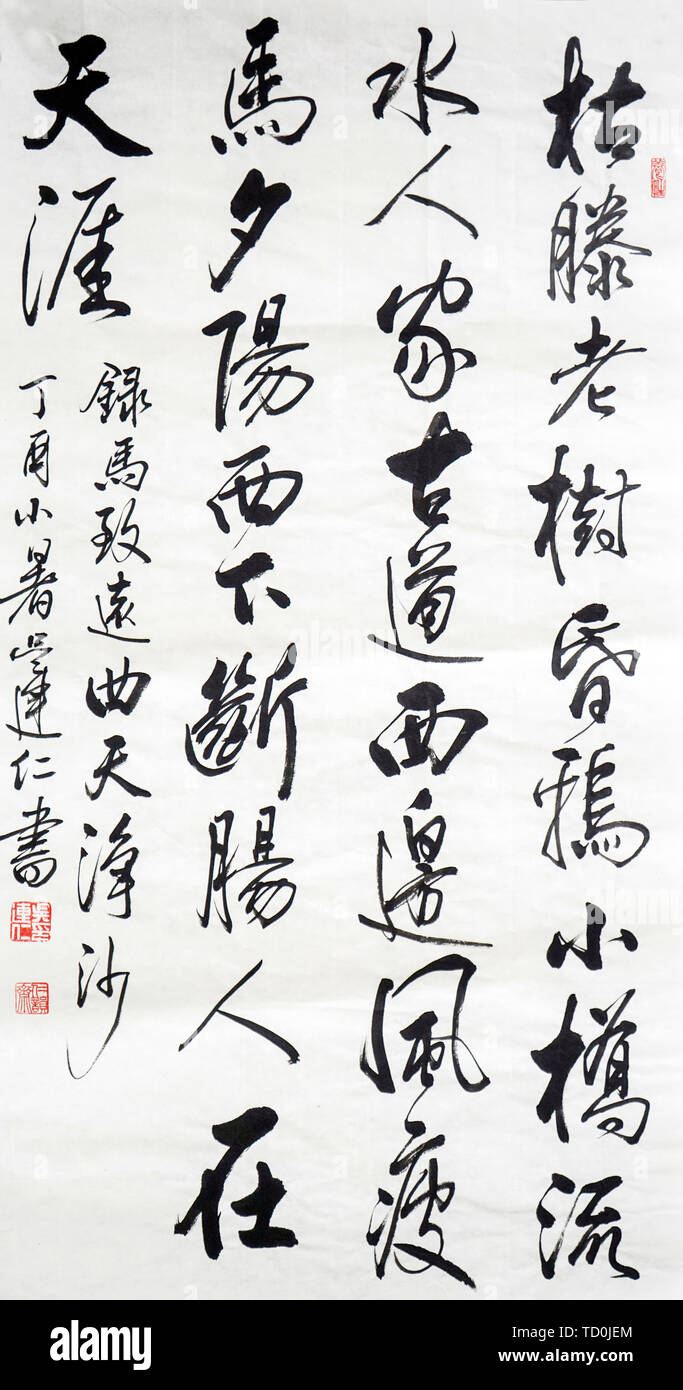 枯滕老樹昏鴉小橋流
水人家古道西邊風疲
馬夕陽西下斷腸人在
天涯
錄馬致遠曲天淨沙
丁酉小暑吳仁書
alamy
Image ID: TD0JEM
www.alamy.com